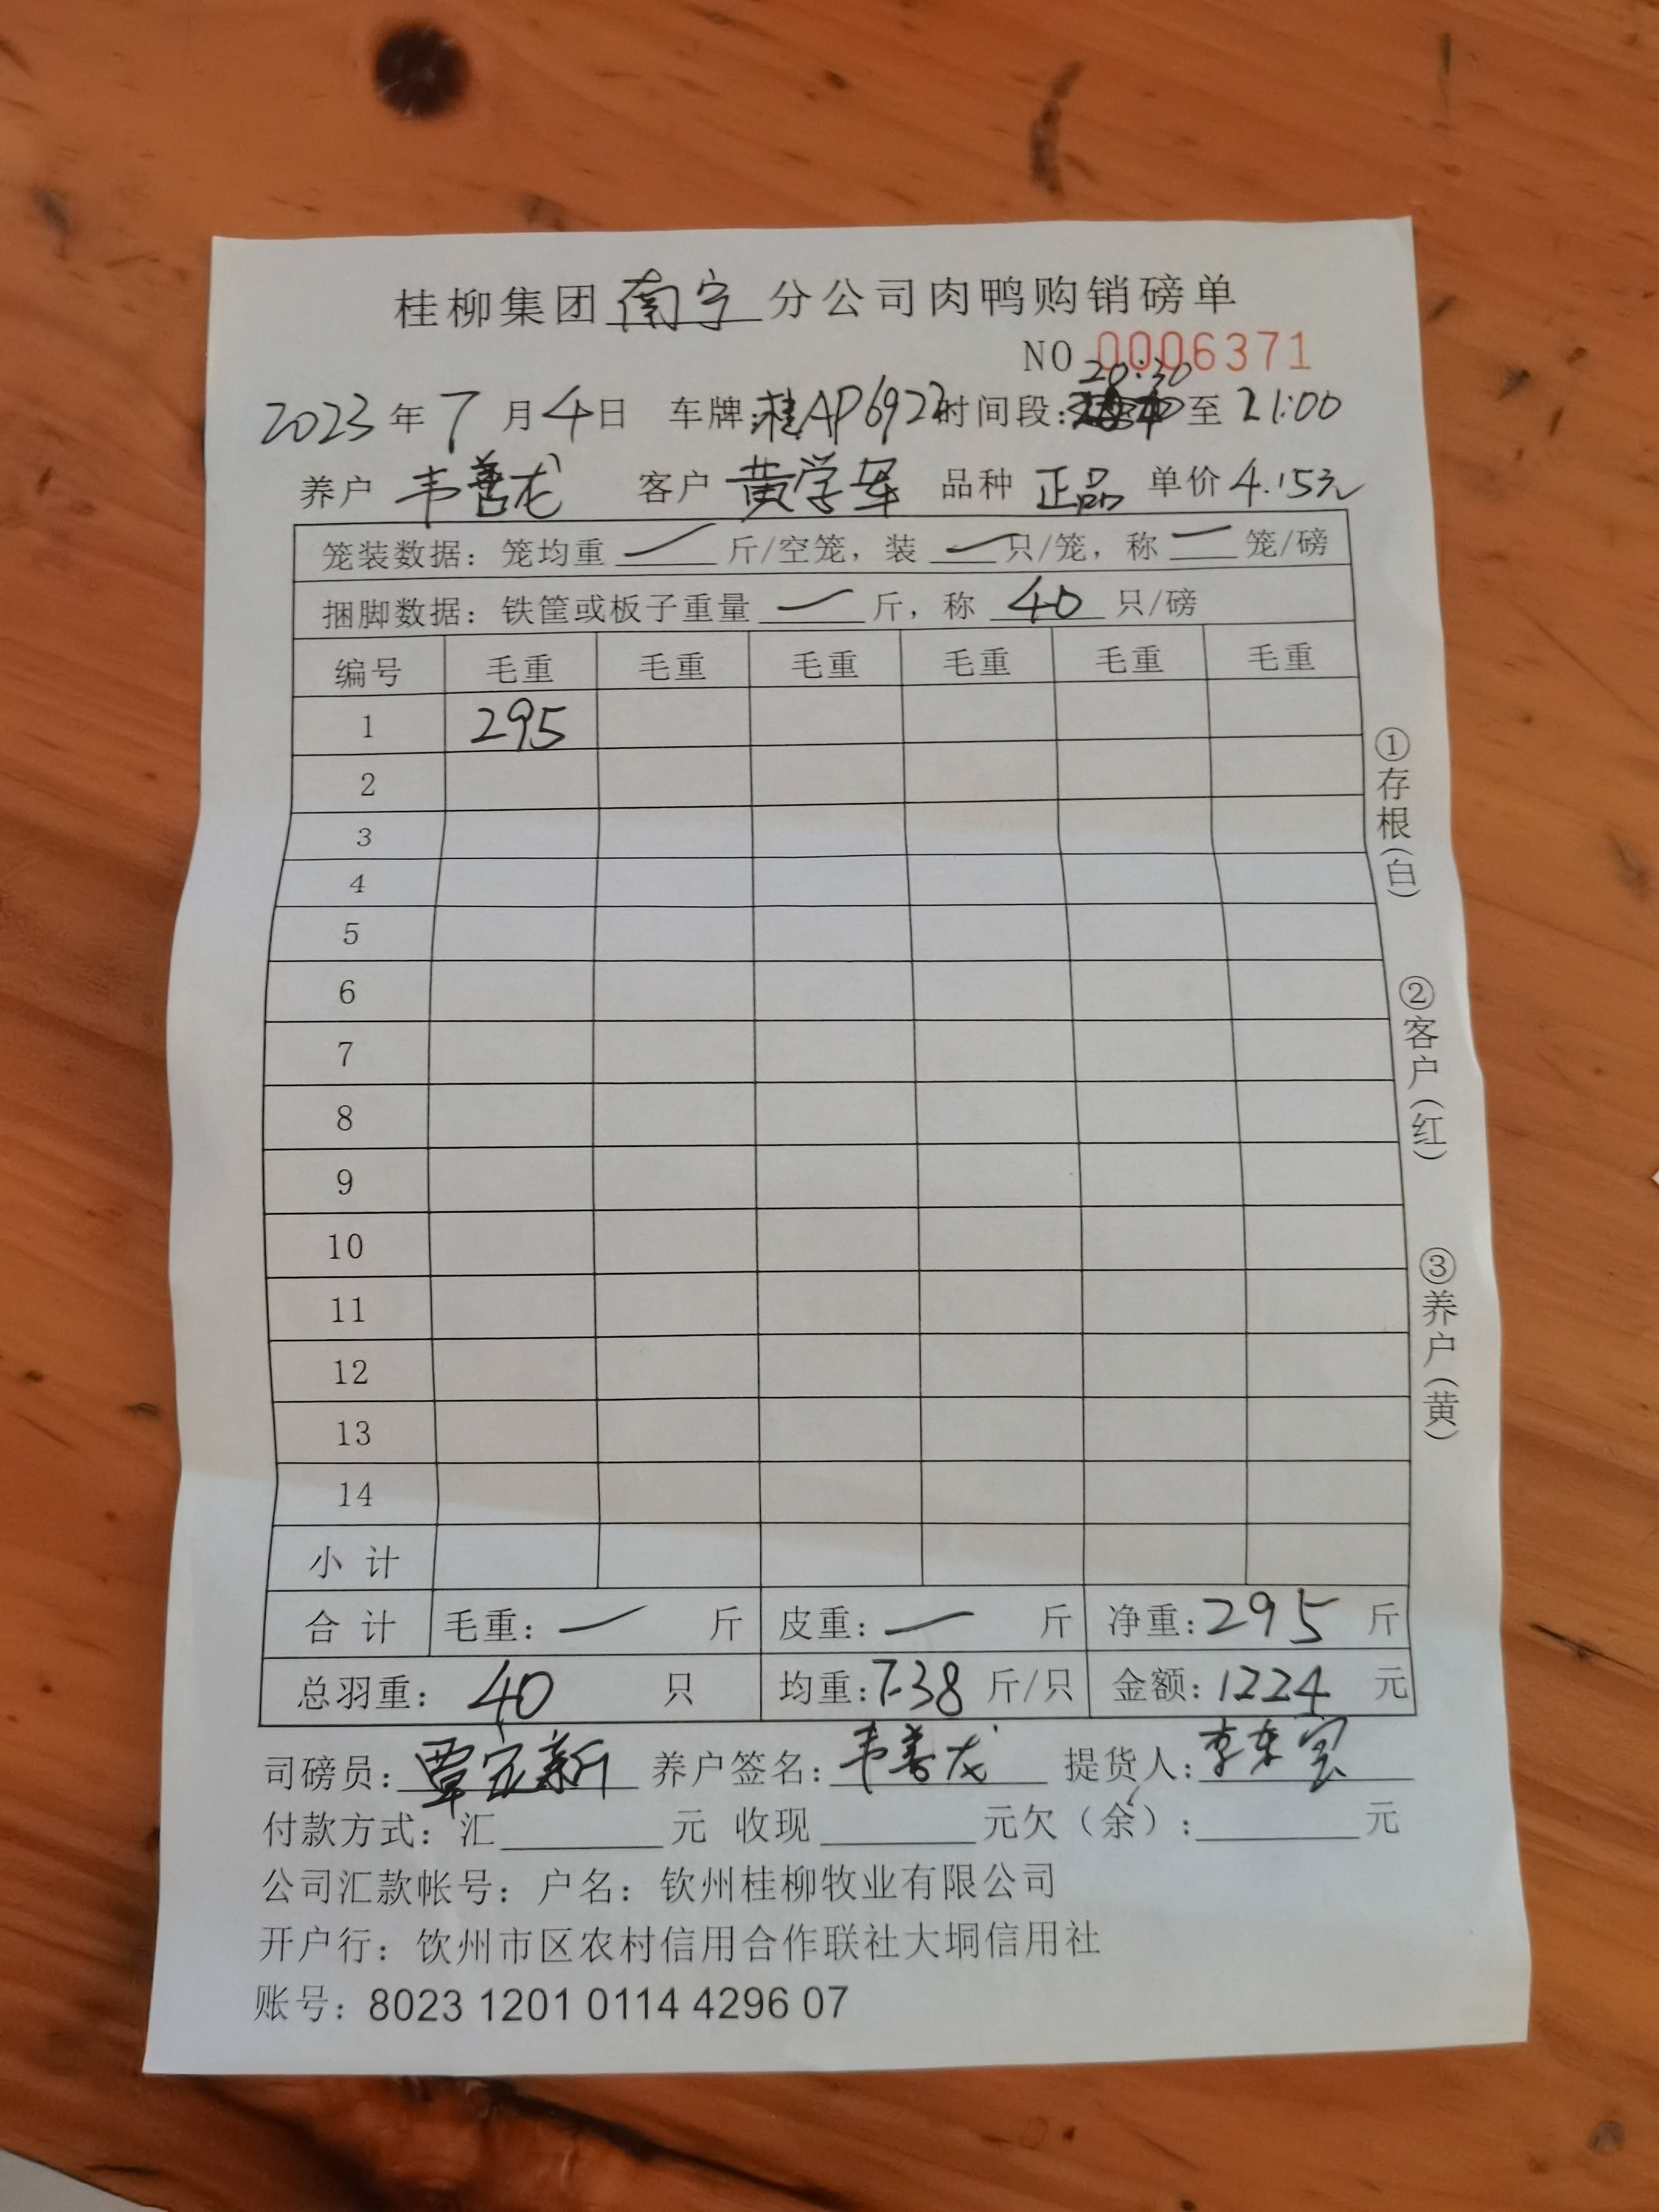 桂柳集团南宁分公司肉鸭购销磅单
NO 0006371
20:30
2023年7月4日 车牌:桂AP6922时间段: 至 21:00
养户 韦善龙 客户 黄学军 品种 正品 单价4.15元
笼装数据: 笼均重 — 斤/空笼, 装 — 只/笼, 称 — 笼/磅
捆脚数据: 铁筐或板子重量 — 斤, 称 40 只/磅
编号 毛重 毛重 毛重 毛重 毛重 毛重
1 295
2
3
4
5
6
7
8
9
10
11
12
13
14
小计
合计 毛重: — 斤 皮重: — 斤 净重: 295 斤
总羽重: 40 只 均重: 7.38 斤/只 金额: 1224 元
司磅员: 覃 新 养户签名: 韦善龙 提货人: 李
付款方式: 汇 元 收现 元欠(余): 元
公司汇款帐号: 户名: 钦州桂柳牧业有限公司
开户行: 钦州市区农村信用合作联社大垌信用社
账号: 8023 1201 0114 4296 07
①存根(白)
②客户(红)
③养户(黄)